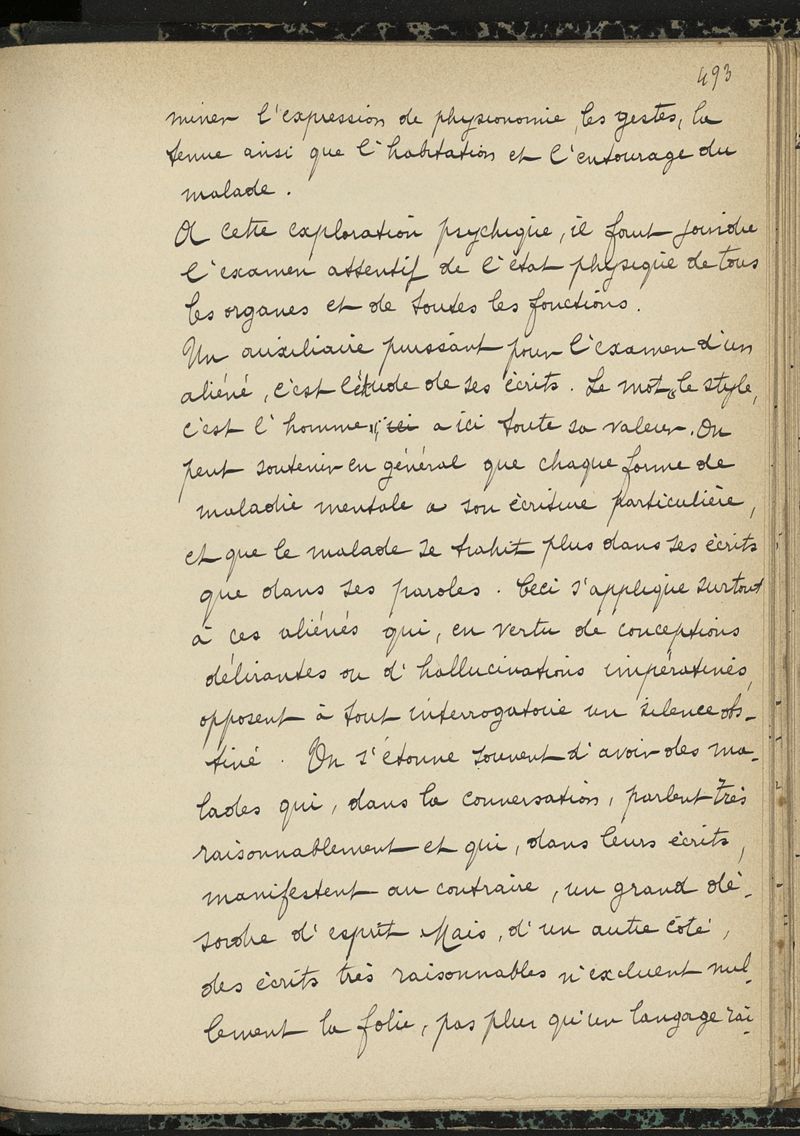 493
miner l'expression de physionomie, les gestes, la
tenue ainsi que l'habitation et l'entourage du
malade.
A cette exploration psychique, il faut joindre
l'examen attentif de l'état physique de tous
les organes et de toutes les fonctions.
Un auxiliaire puissant pour l'examen d'un
aliéné, c'est l'étude de ses écrits. Le mot "le style,
c'est l'homme", ici a ici toute sa valeur. On
peut soutenir en général que chaque forme de
maladie mentale a son écriture particulière,
et que le malade se trahit plus dans ses écrits
que dans ses paroles. Ceci s'applique surtout
à ces aliénés qui, en vertu de conceptions
délirantes ou d'hallucinations impératives,
opposent à tout interrogatoire un silence obs-
tiné. On s'étonne souvent d'avoir des ma-
lades qui, dans la conversation, parlent très
raisonnablement et qui, dans leurs écrits,
manifestent au contraire, un grand dé-
sordre d'esprit. Mais, d'un autre côté,
des écrits très raisonnables n'excluent nul-
lement la folie, pas plus qu'un langage rai-